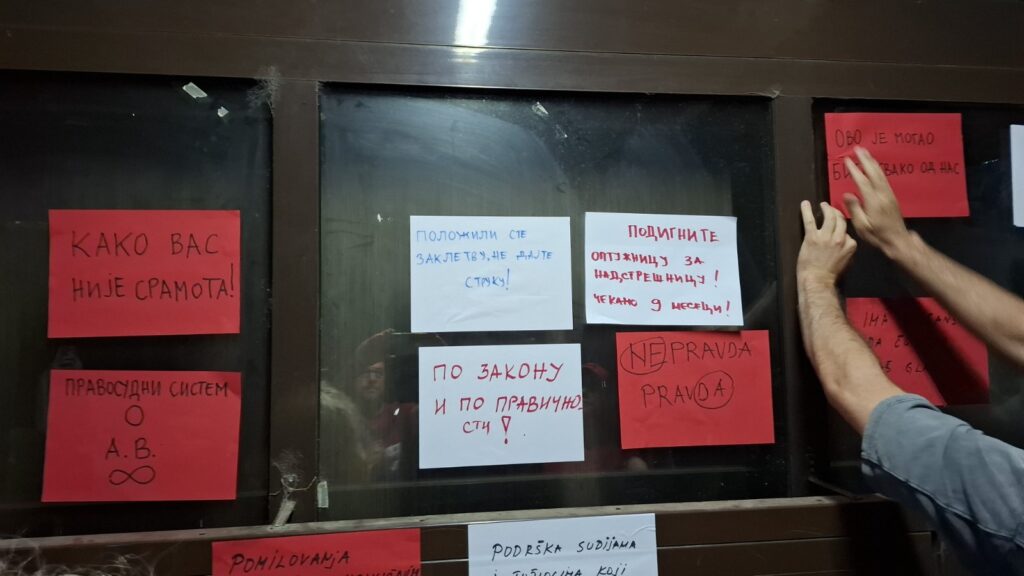 КАКО ВАС
НИЈЕ СРАМОТА!
ПРАВОСУДНИ СИСТЕМ
О
А.В.
∞
ПОЛОЖИЛИ СТЕ
ЗАКЛЕТВУ, НЕ ДАЈТЕ
СТРУКУ!
ПОДИГНИТЕ
ОПТУЖНИЦУ ЗА
НАДСТРЕШНИЦУ!
ЧЕКАМО 9 МЕСЕЦИ!
ПО ЗАКОНУ
И ПО ПРАВИЧНО
СТИ!
NEPRAVDA
PRAVDA
ОВО ЈЕ МОГАО
ОД НАС
IMA
DA
POMILOVANJA
PODRŠKA SUDIJAMA
I TUŽIOCIMA KOJI